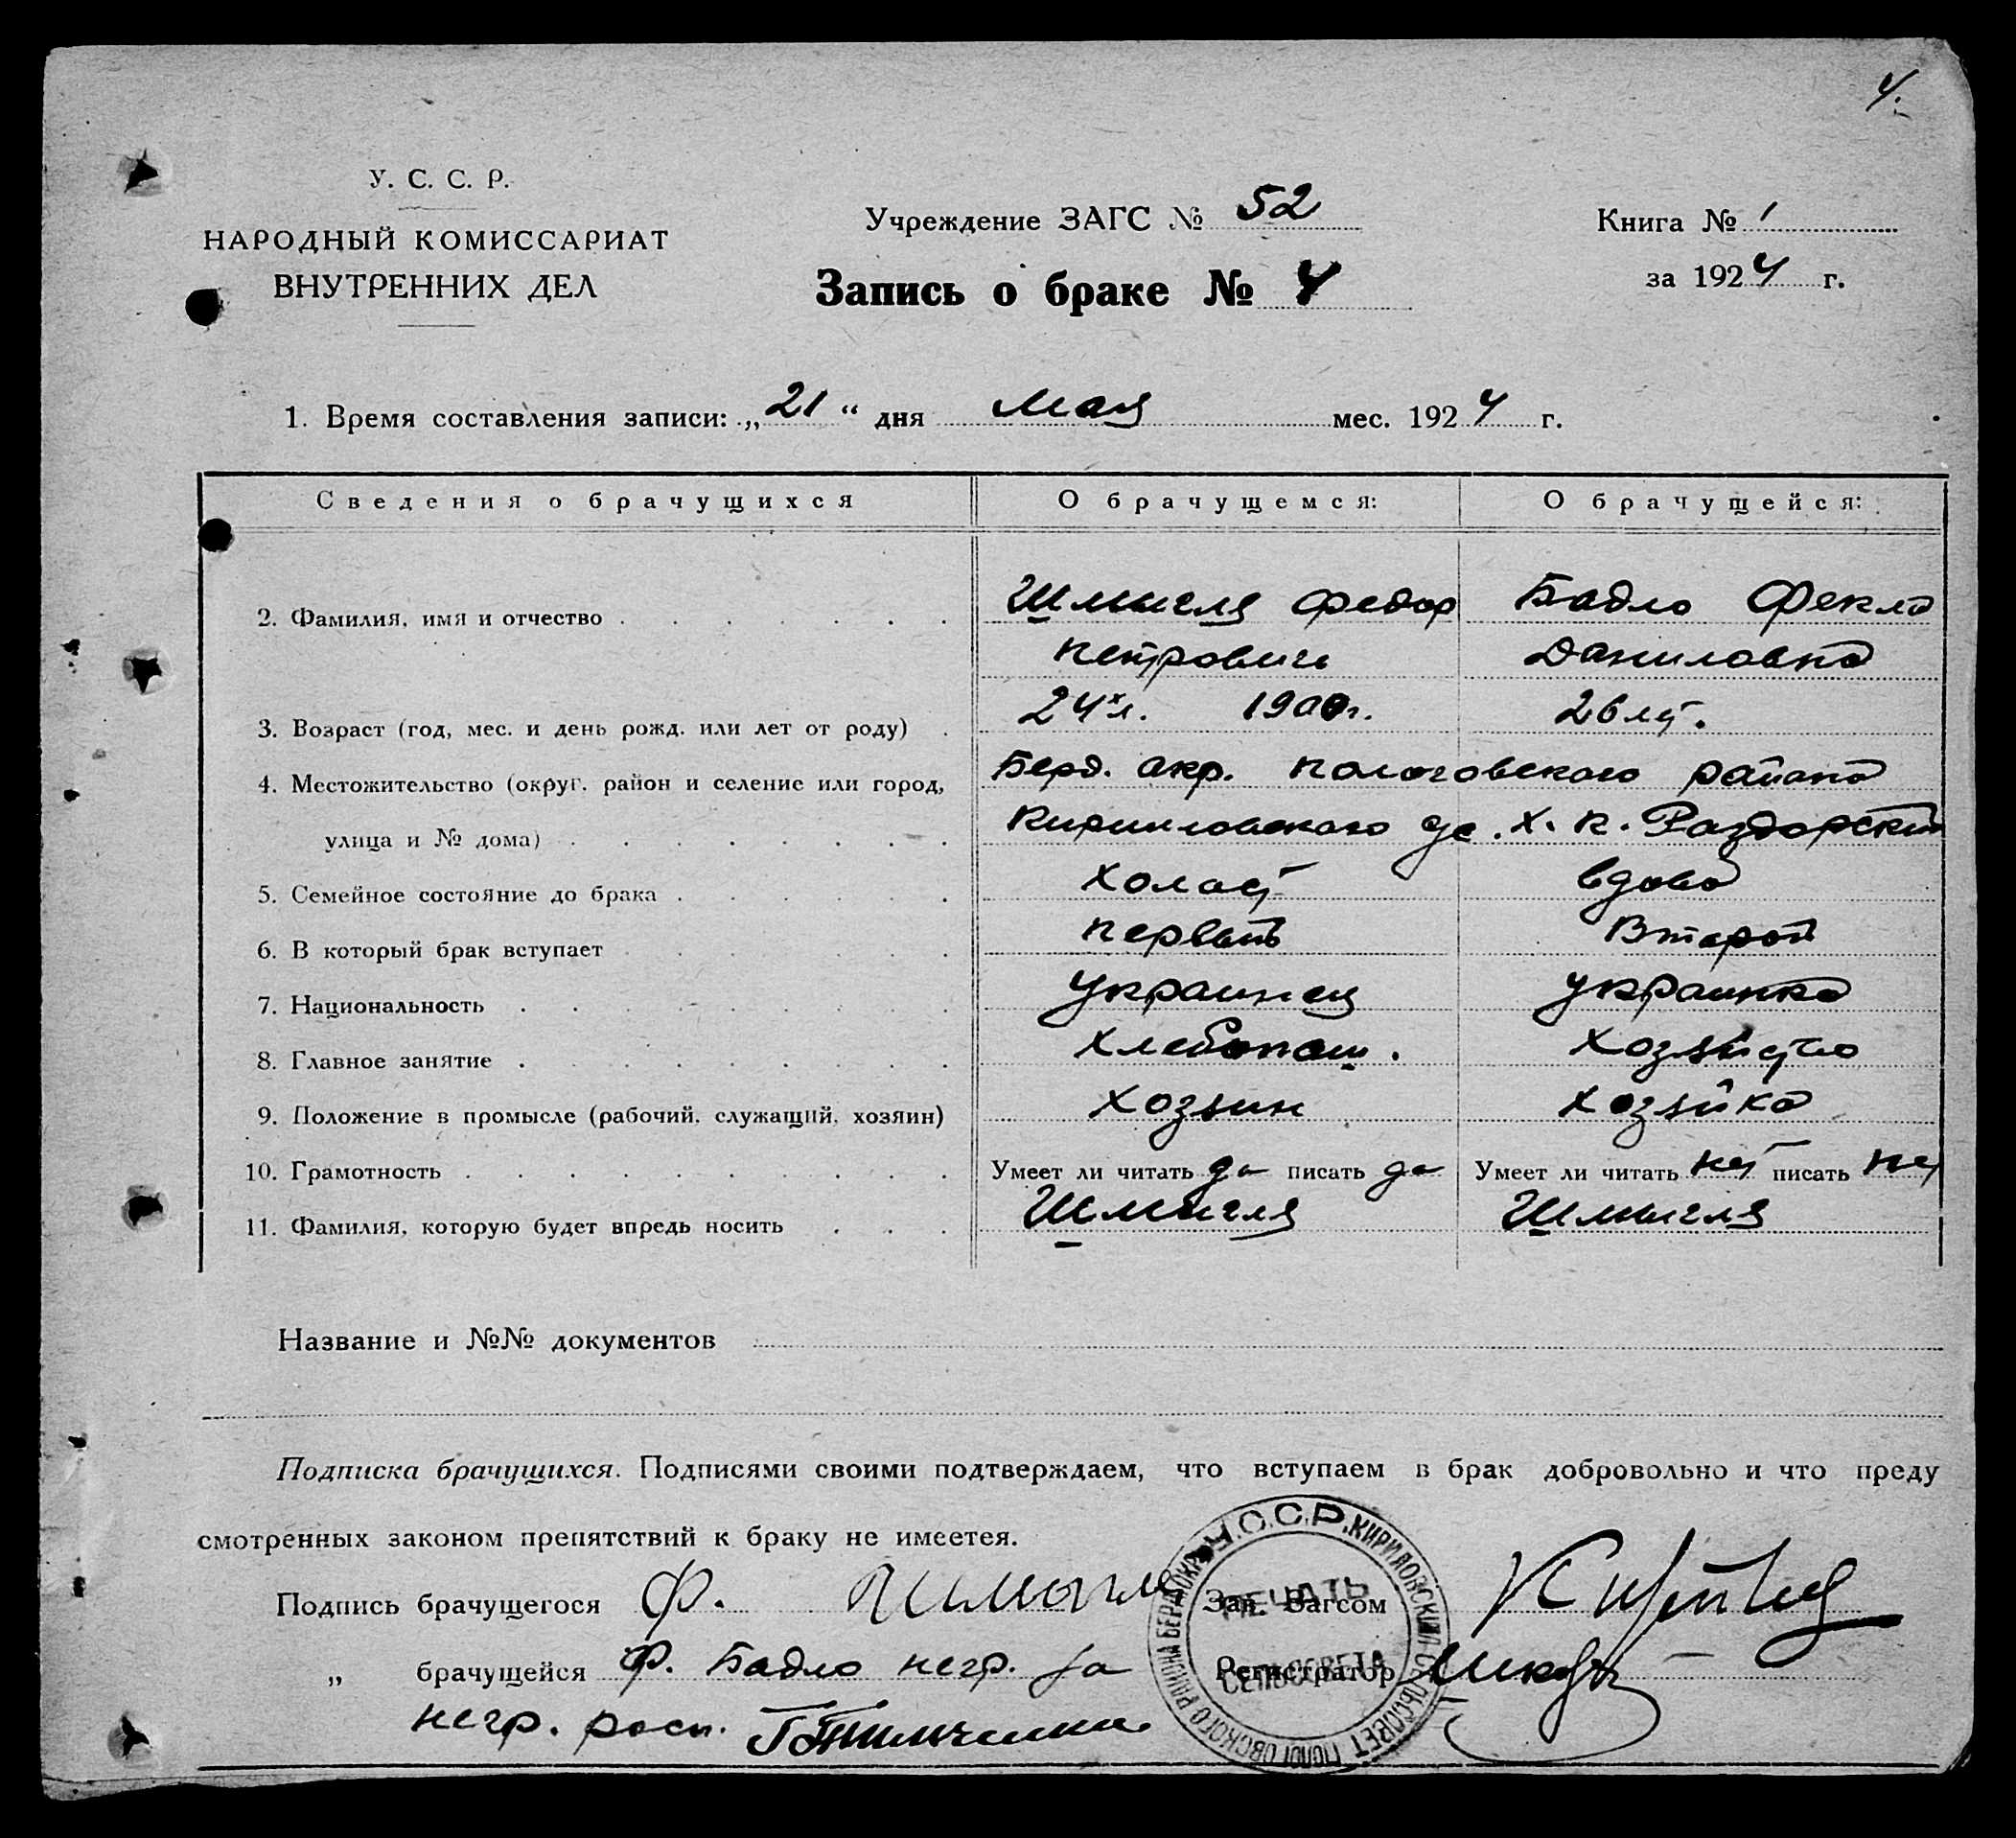 4.
У. С. С. Р.
НАРОДНЫЙ КОМИССАРИАТ
ВНУТРЕННИХ ДЕЛ
Учреждение ЗАГС № 52
Книга № 1
Запись о браке № 4
за 1924 г.
1. Время составления записи: „21“ дня мая мес. 1924 г.
Сведения о брачущихся О брачущемся: О брачущейся:
2. Фамилия, имя и отчество Шмигля Федор Бадло Фекла
Петрович Даниловна
3. Возраст (год, мес. и день рожд. или лет от роду) 24 л. 1900 г. 26 лет.
4. Местожительство (округ, район и селение или город, Берд. окр. Пологовского района
улица и № дома) Кириловского с. х. к. Раздорский
5. Семейное состояние до брака холост вдова
6. В который брак вступает первый второй
7. Национальность украинец украинка
8. Главное занятие хлебопаш. хозяйство
9. Положение в промысле (рабочий, служащий, хозяин) хозяин хозяйка
10. Грамотность Умеет ли читать да писать да Умеет ли читать нет писать нет
11. Фамилия, которую будет впредь носить Шмигля Шмигля
Название и №№ документов
Подписка брачущихся. Подписями своими подтверждаем, что вступаем в брак добровольно и что преду
смотренных законом препятствий к браку не имеетея.
Подпись брачущегося Ф. Шмыгля Зав. Загсом
„ брачущейся Ф. Бадло негр. за Регистратор
негр. росп.
У.С.С.Р. КИРИЛОВСКИЙ СЕЛЬСОВЕТ ПОЛОГОВСКОГО РАЙОНА БЕРДОКР.
ПЕЧАТЬ
СЕЛЬСОВЕТА